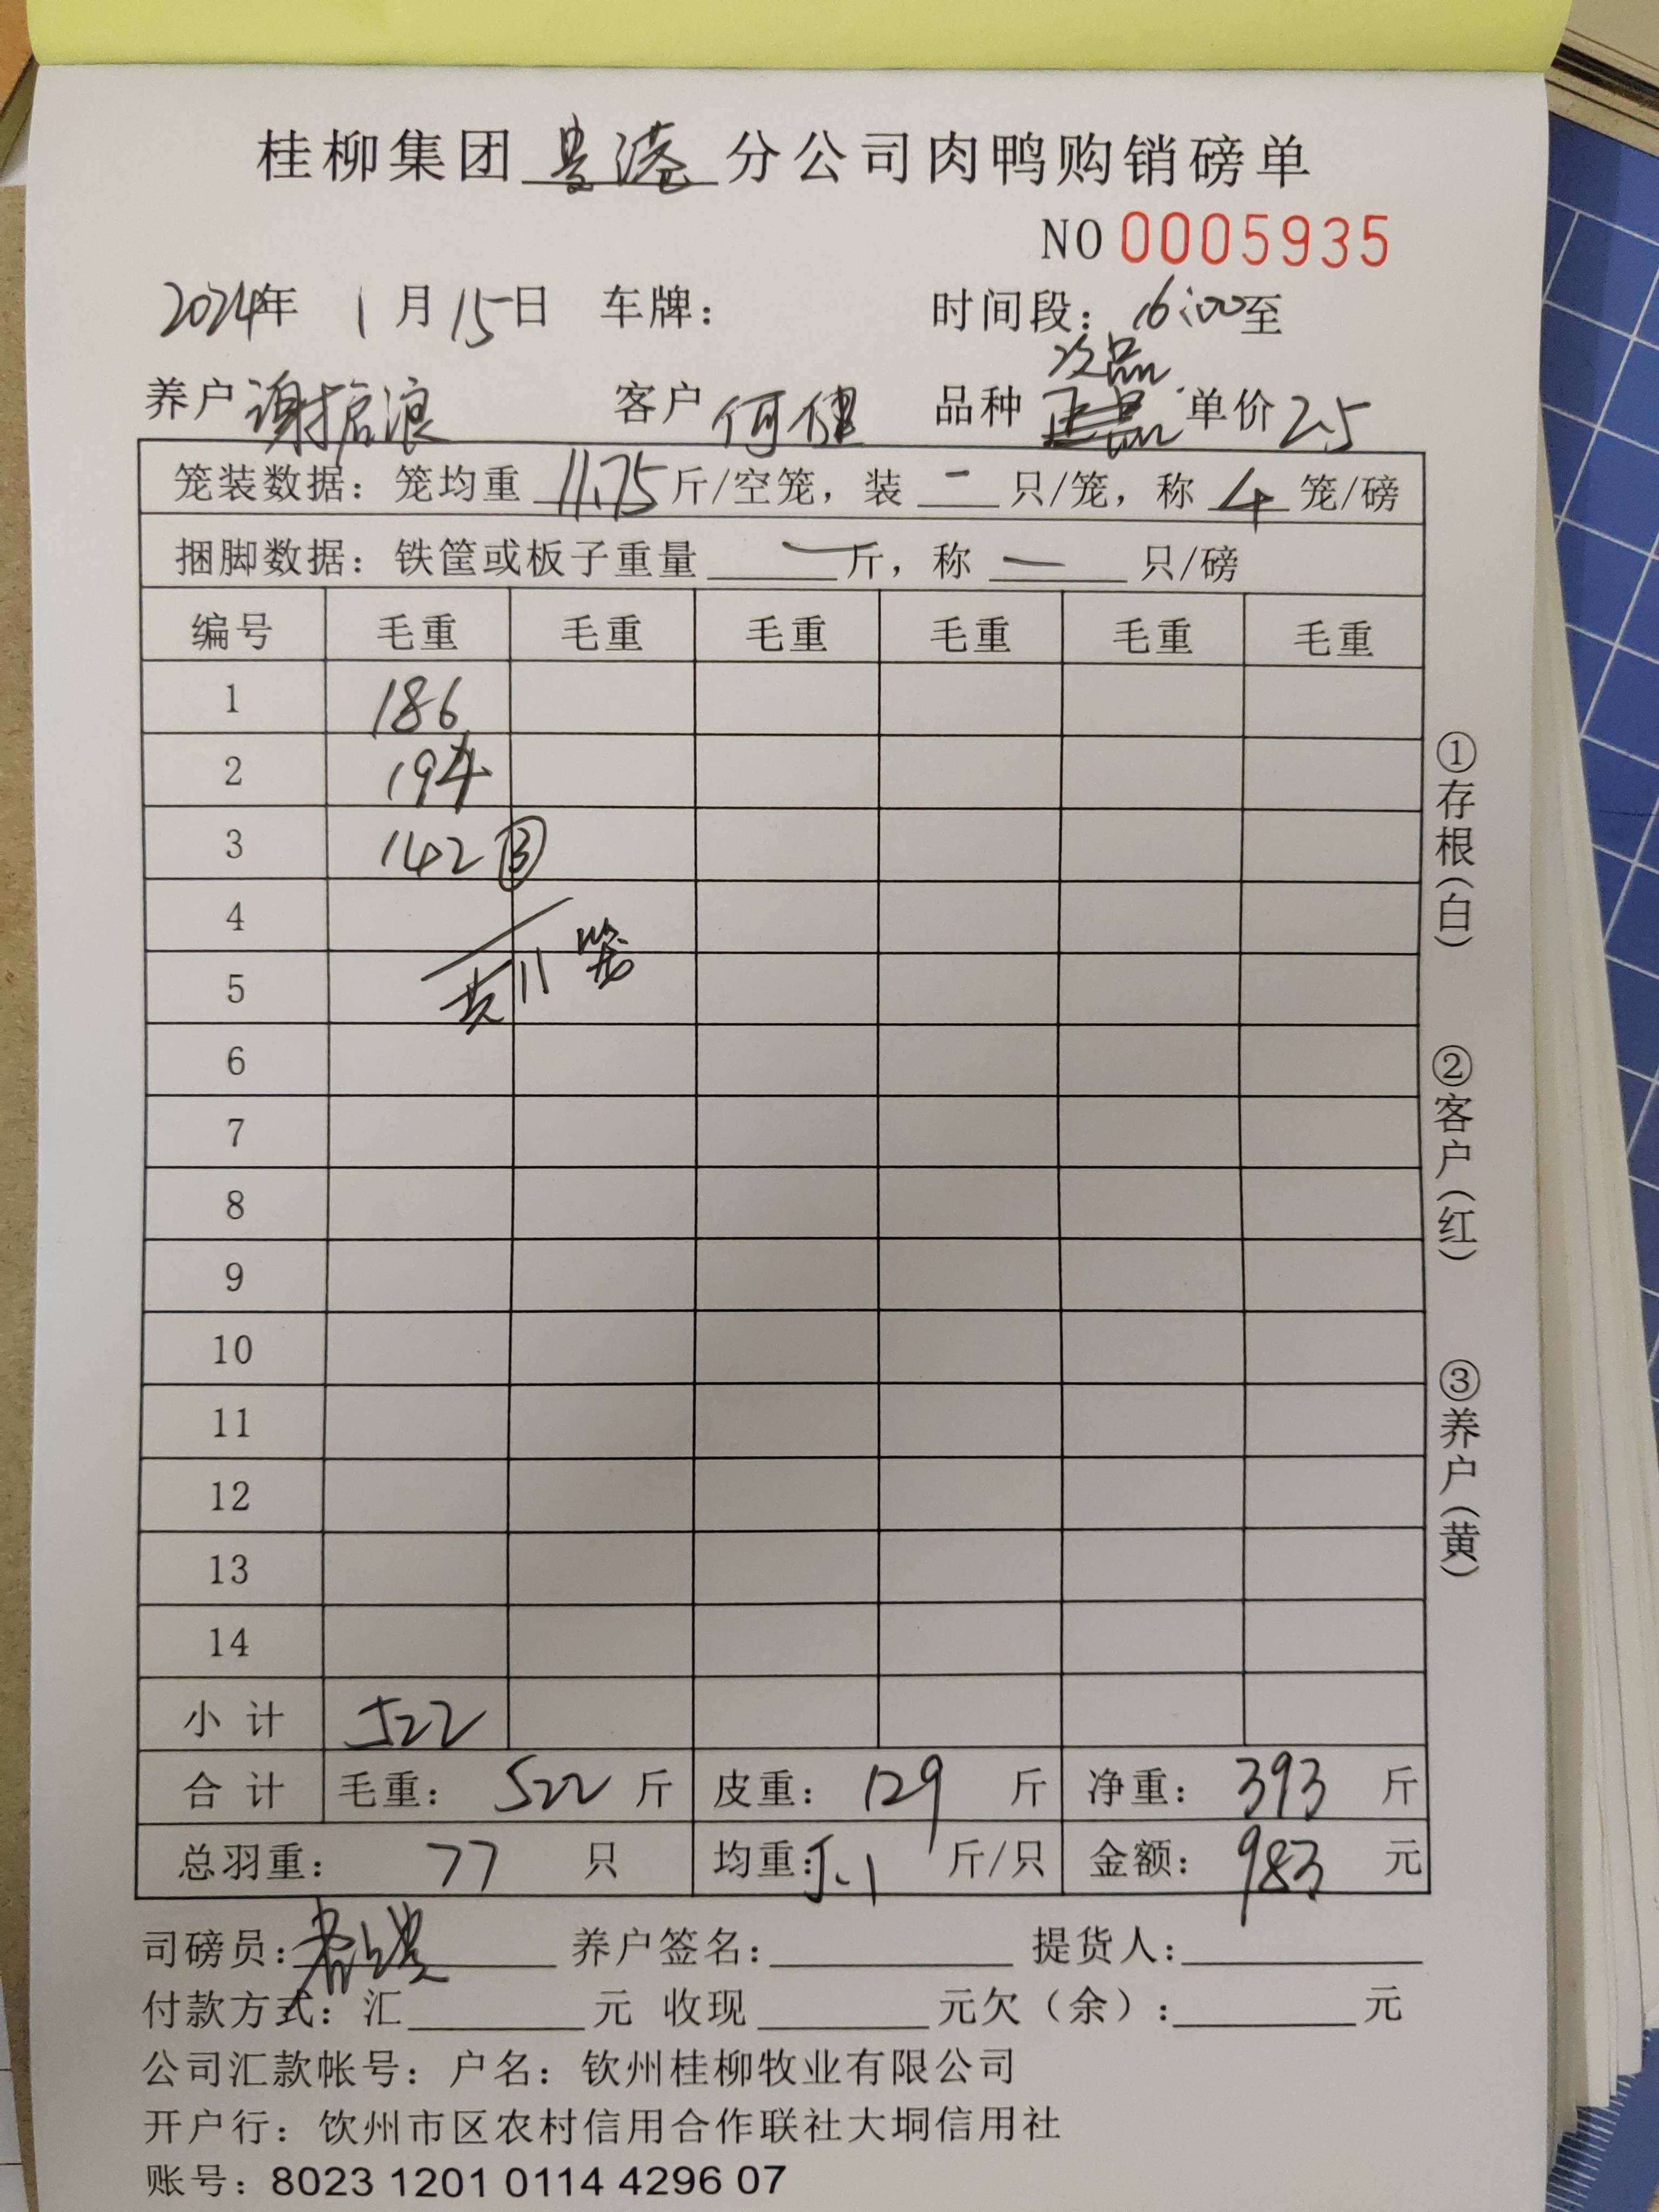 桂柳集团贵港分公司肉鸭购销磅单
NO 0005935
2024年 1月15日 车牌： 时间段：16:00至
次品
养户 谢振浪 客户 何健 品种 正品 单价 2.5
笼装数据：笼均重 11.75 斤/空笼，装 二 只/笼，称 4 笼/磅
捆脚数据：铁筐或板子重量 一 斤，称 一 只/磅
编号 毛重 毛重 毛重 毛重 毛重 毛重
1 186
2 194
3 142 ③
4
5 共11笼
6
7
8
9
10
11
12
13
14
小 计 522
合 计 毛重： 522 斤 皮重： 129 斤 净重： 393 斤
总羽重： 77 只 均重：5.1 斤/只 金额： 983 元
司磅员： 养户签名： 提货人：
付款方式：汇 元 收现 元欠（余）： 元
公司汇款帐号：户名：钦州桂柳牧业有限公司
开户行：饮州市区农村信用合作联社大垌信用社
账号：8023 1201 0114 4296 07
①存根（白）
②客户（红）
③养户（黄）